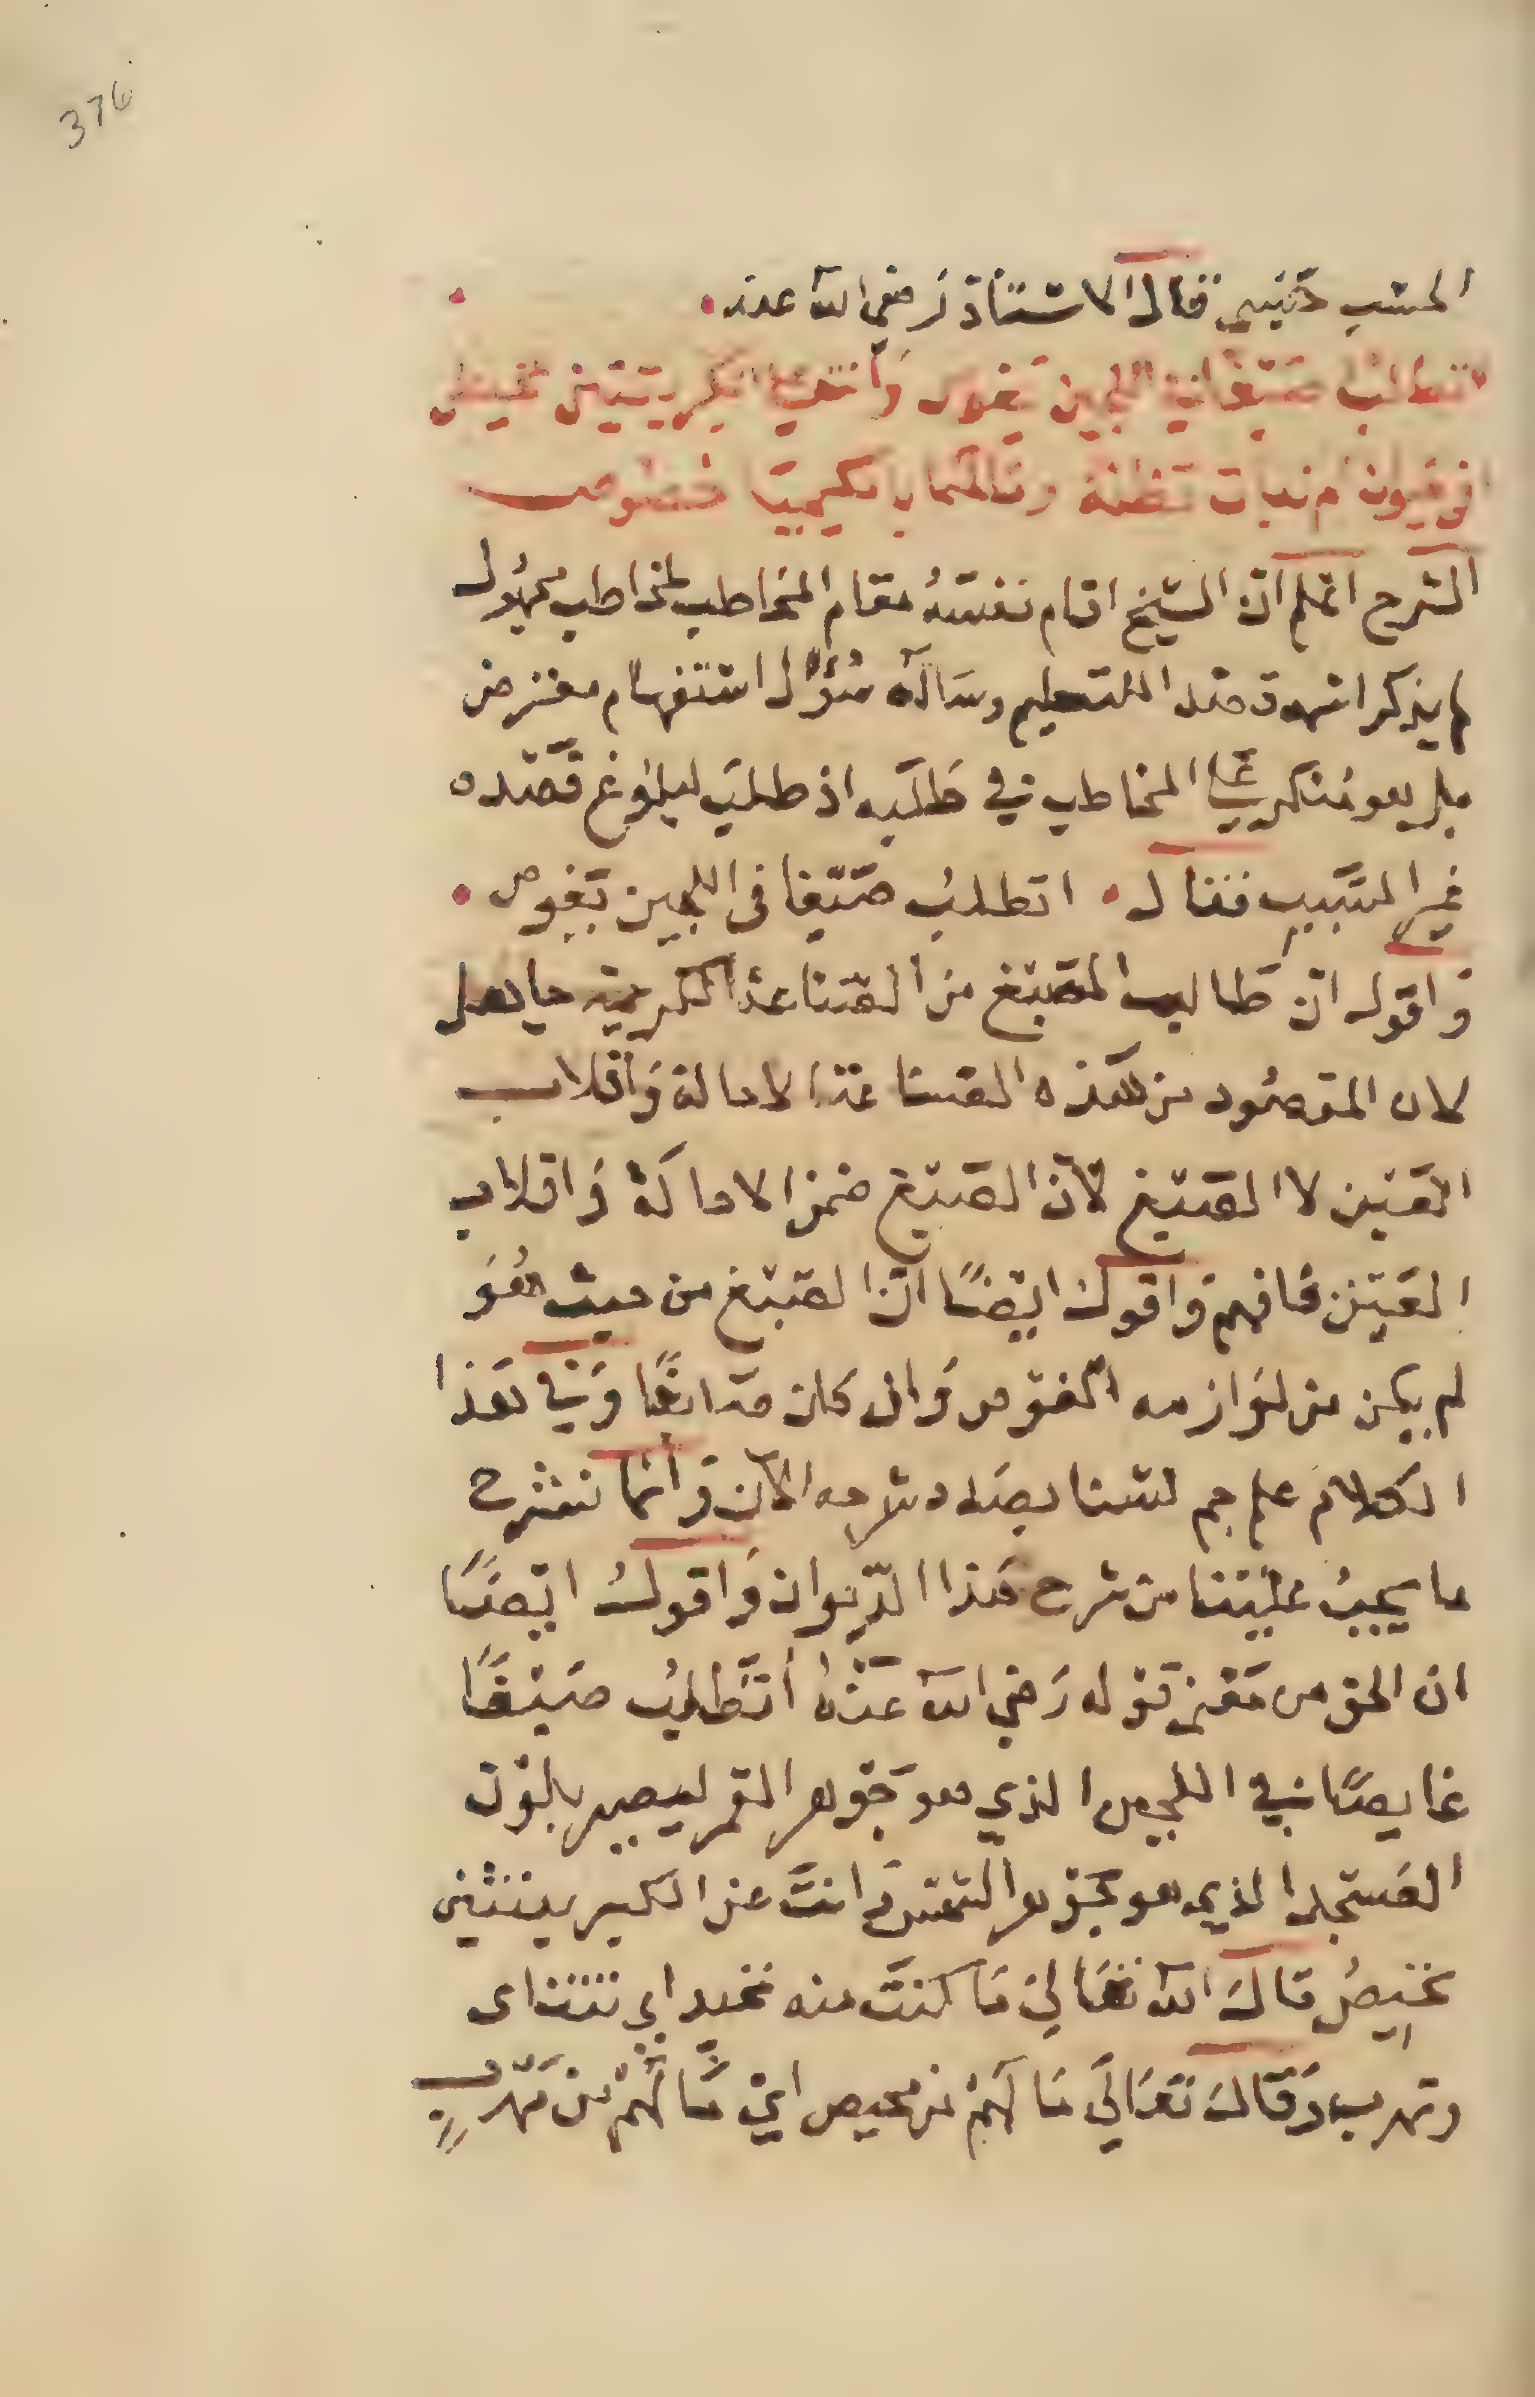 376
قال الاستاذ رضي الله عنه
اتطلب صبغا في اللجين يغوص وانت عن الكبريتتين تحيص
وفي حيوان ام نبات تظنه وما لهما بالكيميا خصوص
الشرح اعلم ان الشيخ اقام نفسه مقام المخاطب لمخاطب مجهول
لم يذكر اسمه قصدا للتعليم وساله سؤال استفهام معترض
بل هو منكر على المخاطب في طلبه اذ طلب لبلوغ قصده
غير السبب فقال اتطلب صبغا في اللجين يغوص
واقول ان طالب الصبغ من الصناعة الكريمة جاهل
لان المقصود من هذه الصناعة الاحالة وانقلاب
العين لا الصبغ لان الصبغ ضمن الاحالة وانقلاب
العين فافهم واقول ايضًا ان الصبغ من حيث هُوَ
لم يكن من لوازمه الغوص وان كان صابغًا وفي هذا
الكلام علم جم لسنا بصدد شرحه الان وانما نشرح
ما يجب علينا من شرح هذا الديوان واقول ايضًا
ان الحق من معنى قوله رضي الله عنه أتطلب صبغًا
غايصًا في اللجين الذي هو جوهر القمر ليصير بلون
العسجد الذي هو جوهر الشمس وانت عن الكبريتتين
تحيصُ قال الله تعالى ما كنت منه تحيد اي تتناى
وتهرب وقال تعالى ما لهم من محيص اي ما لهم من مهربٍ